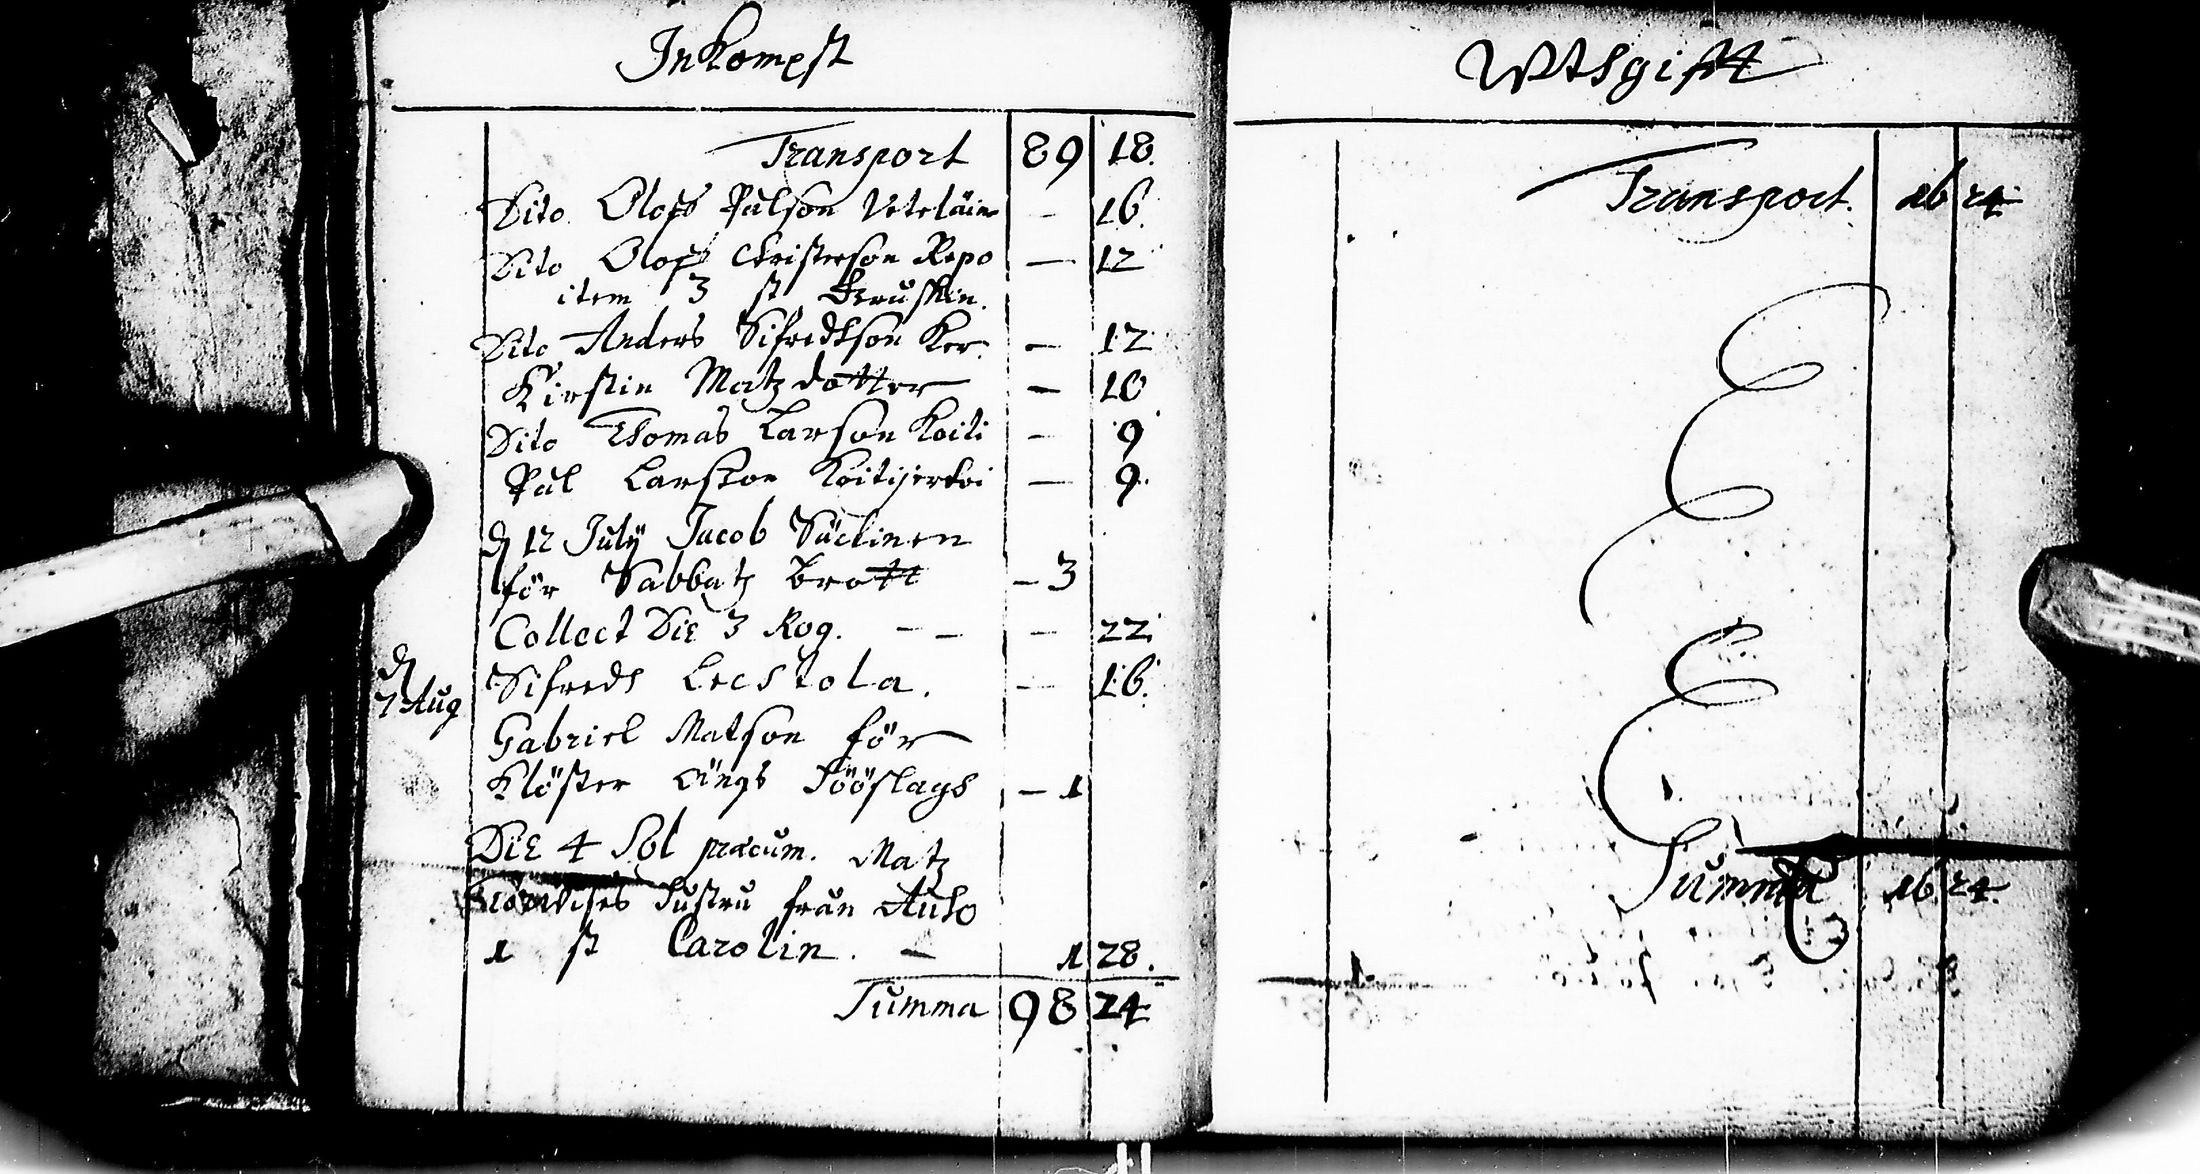 Inkompst
Transport 89 18.
Dito Olofs Pålson Veteläin - 16.
Dito Olofs Christerson Repo - 12
item 3 st
Dito Anders Sifredhson Ker. - 12
Kirstin Matz dotter - 10
Dito Thomas Larson Koiti - 9
Pål Larsson - 9.
d 12 Julij Jacob Säckinen
för Sabbatz brott - 3
Collect Die 3 Rog. - - - 22
d
7 Aug Sifredh Lechtola. - 16.
Gabriel Matson för
Klöster ängs Söösslags - 1
Die 4 Sol precum. Matz
hustru från
1 st Carolin. - 1 28.
Summa 98 24
Wthgifft
Transport. 16 24
Summa 16 24.